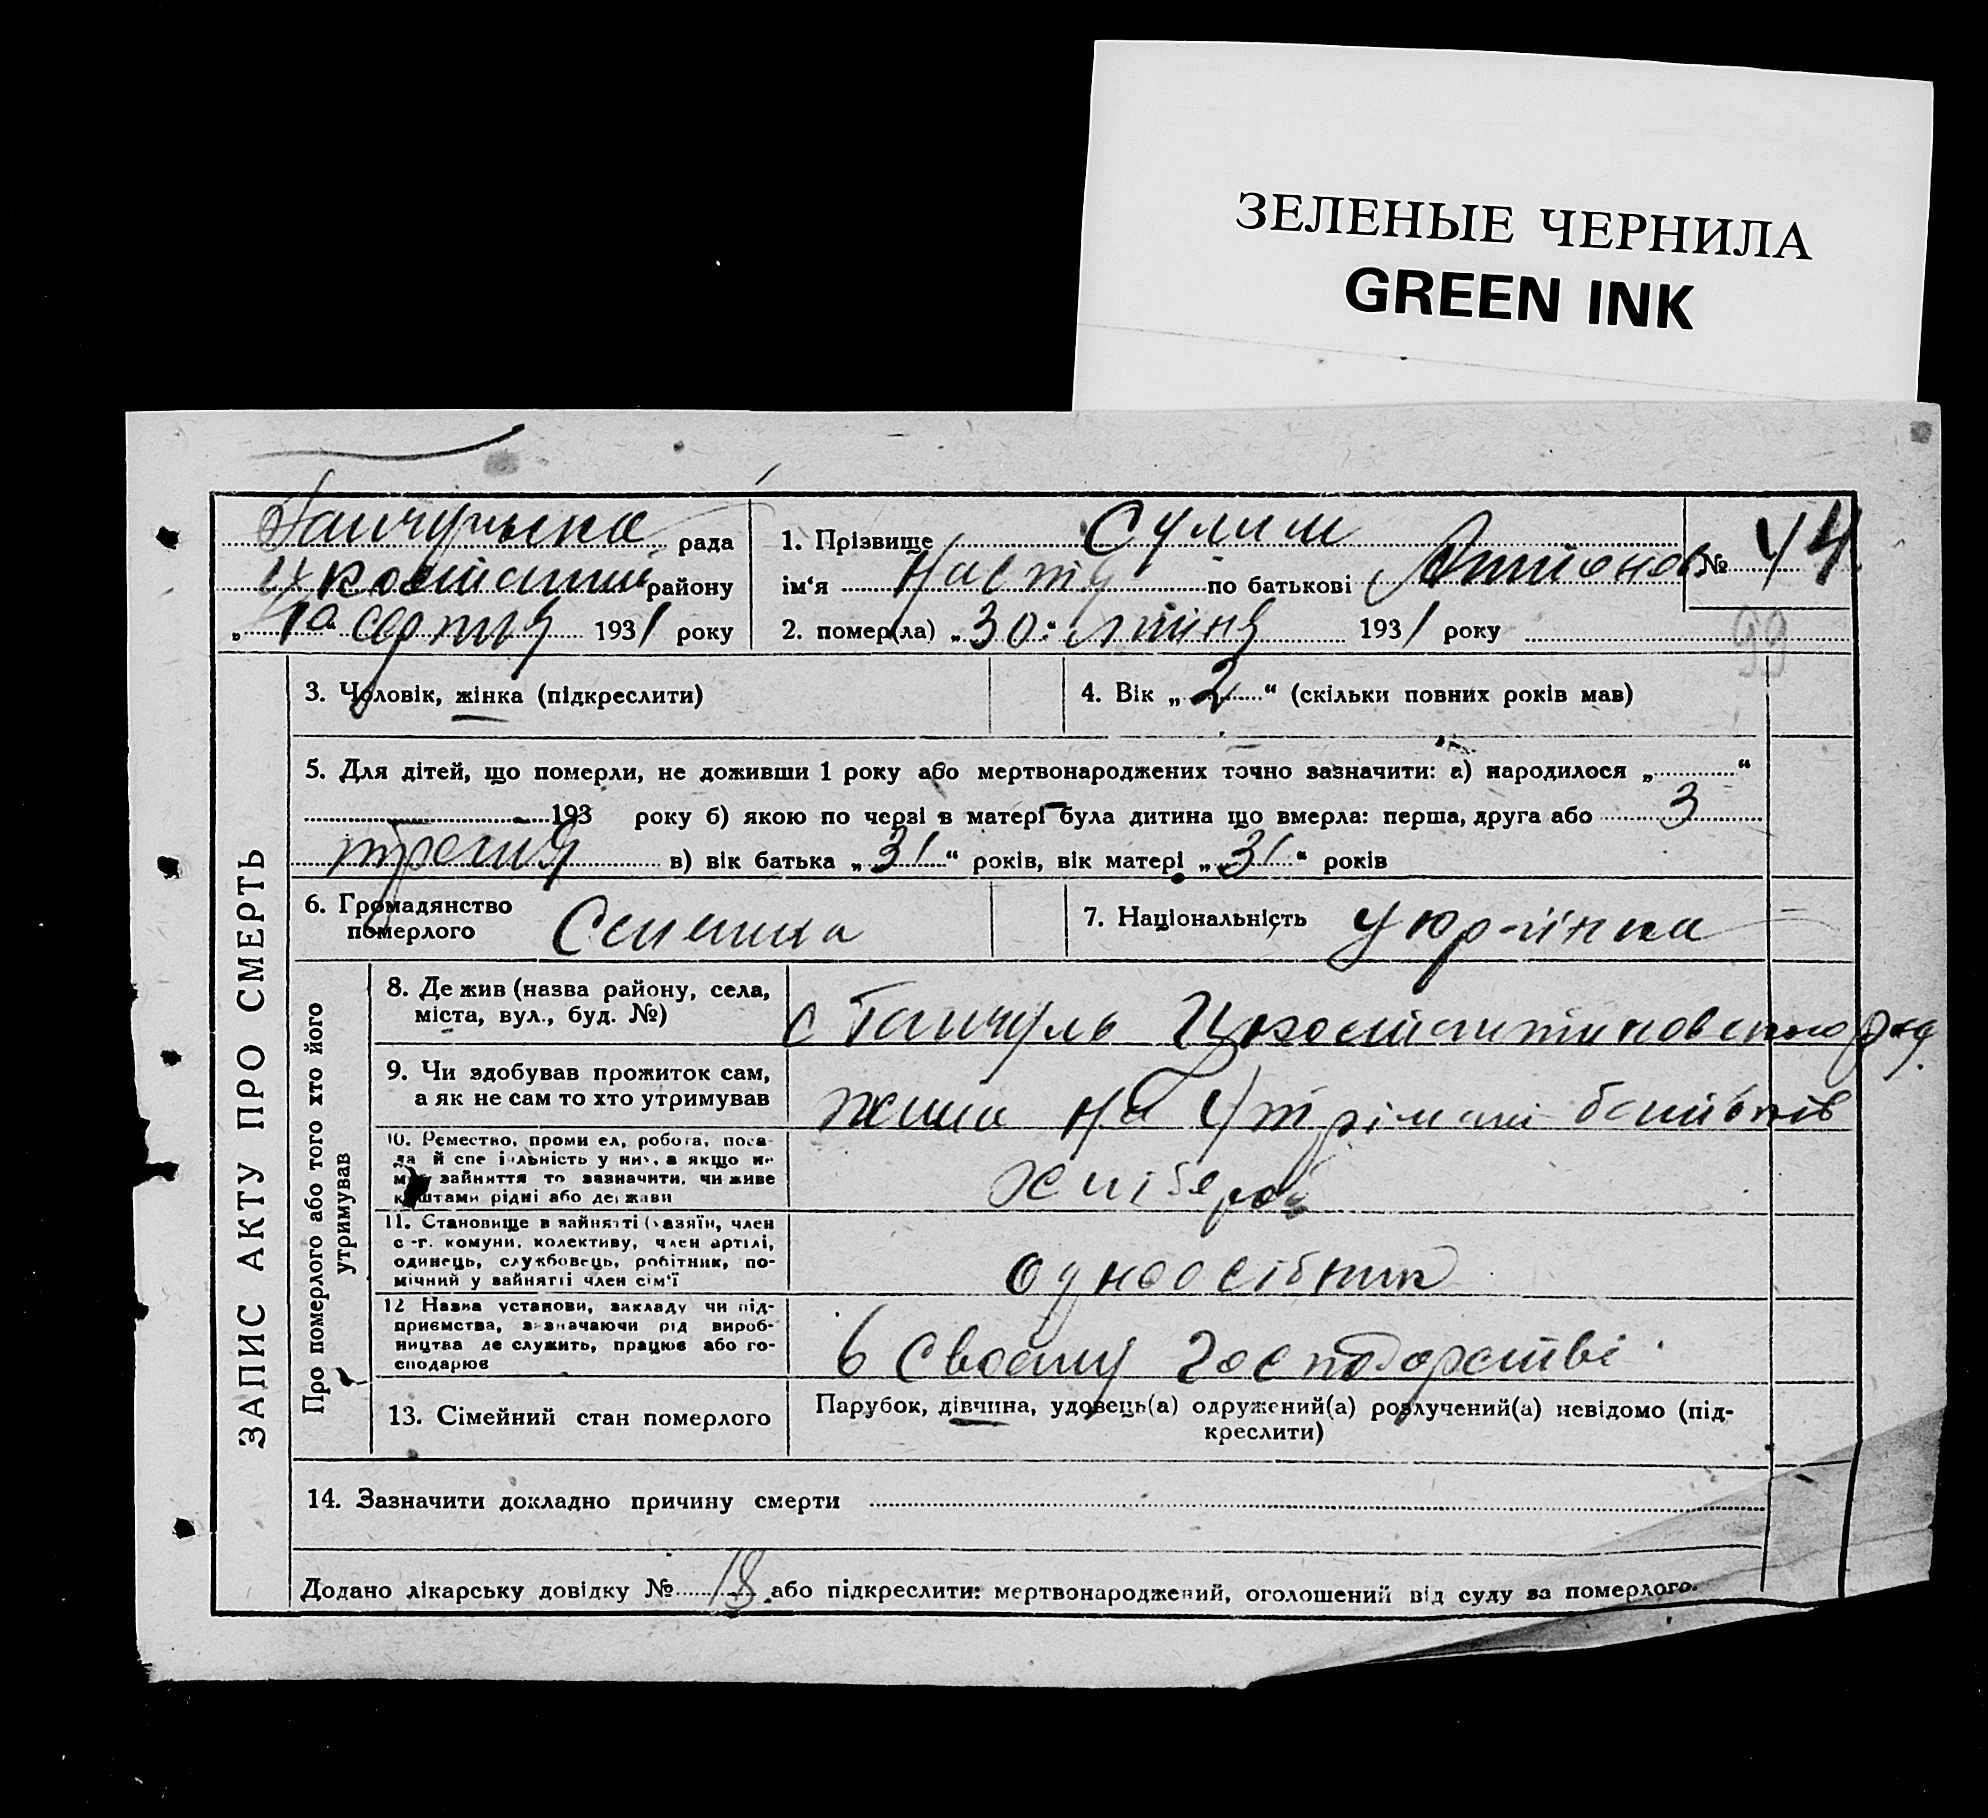 ЗЕЛЕНЫЕ ЧЕРНИЛА
GREEN INK
рада
району
„ 1го “ серпня 1931 року
1. Прізвище Сулим
ім‘я Настя по батькові
№ 44
2. помер(ла) „ 30 “ липня 1931 року
99
ЗАПИС АКТУ ПРО СМЕРТЬ
3. Чоловік, жінка (підкреслити)
4. Вік „ 2 “ (скільки повних років мав)
5. Для дітей, що померли, не доживши 1 року або мертвонароджених точно зазначити: а) народилося „ “
193 року б) якою по черзі в матері була дитина що вмерла: перша, друга або 3
третя в) вік батька „ 31 “ років, вік матері „ 31 “ років
6. Громадянство
померлого
Селянка
7. Національність українка
Про померлого або того хто його
утримував
8. Де жив (назва району, села,
міста, вул., буд. №)
с Гайчуль
9. Чи здобував прожиток сам,
а як не сам то хто утримував
жила на утрімані батьків
10. Ремество, промисел, робота, поса-
да й спеціяльність у них, а якщо не
має зайняття то зазначити, чи живе
коштами рідні або держави
хлібероб
11. Становище в зайнятті (хазяїн, член
с.-г. комуни, колективу, член артілі,
одинець, службовець, робітник, по-
мічний у зайнятті член сім‘ї
одноосібник
12 Назва установи, закладу чи під-
приємства, зазначаючи рід вироб-
ництва де служить, працює або го-
сподарює
в своєму господарстві
13. Сімейний стан померлого
Парубок, дівчина, удовець(а) одружений(а) розлучений(а) невідомо (під-
креслити)
14. Зазначити докладно причину смерти
Додано лікарську довідку № 18. або підкреслити: мертвонароджений, оголошений від суду за померлого.